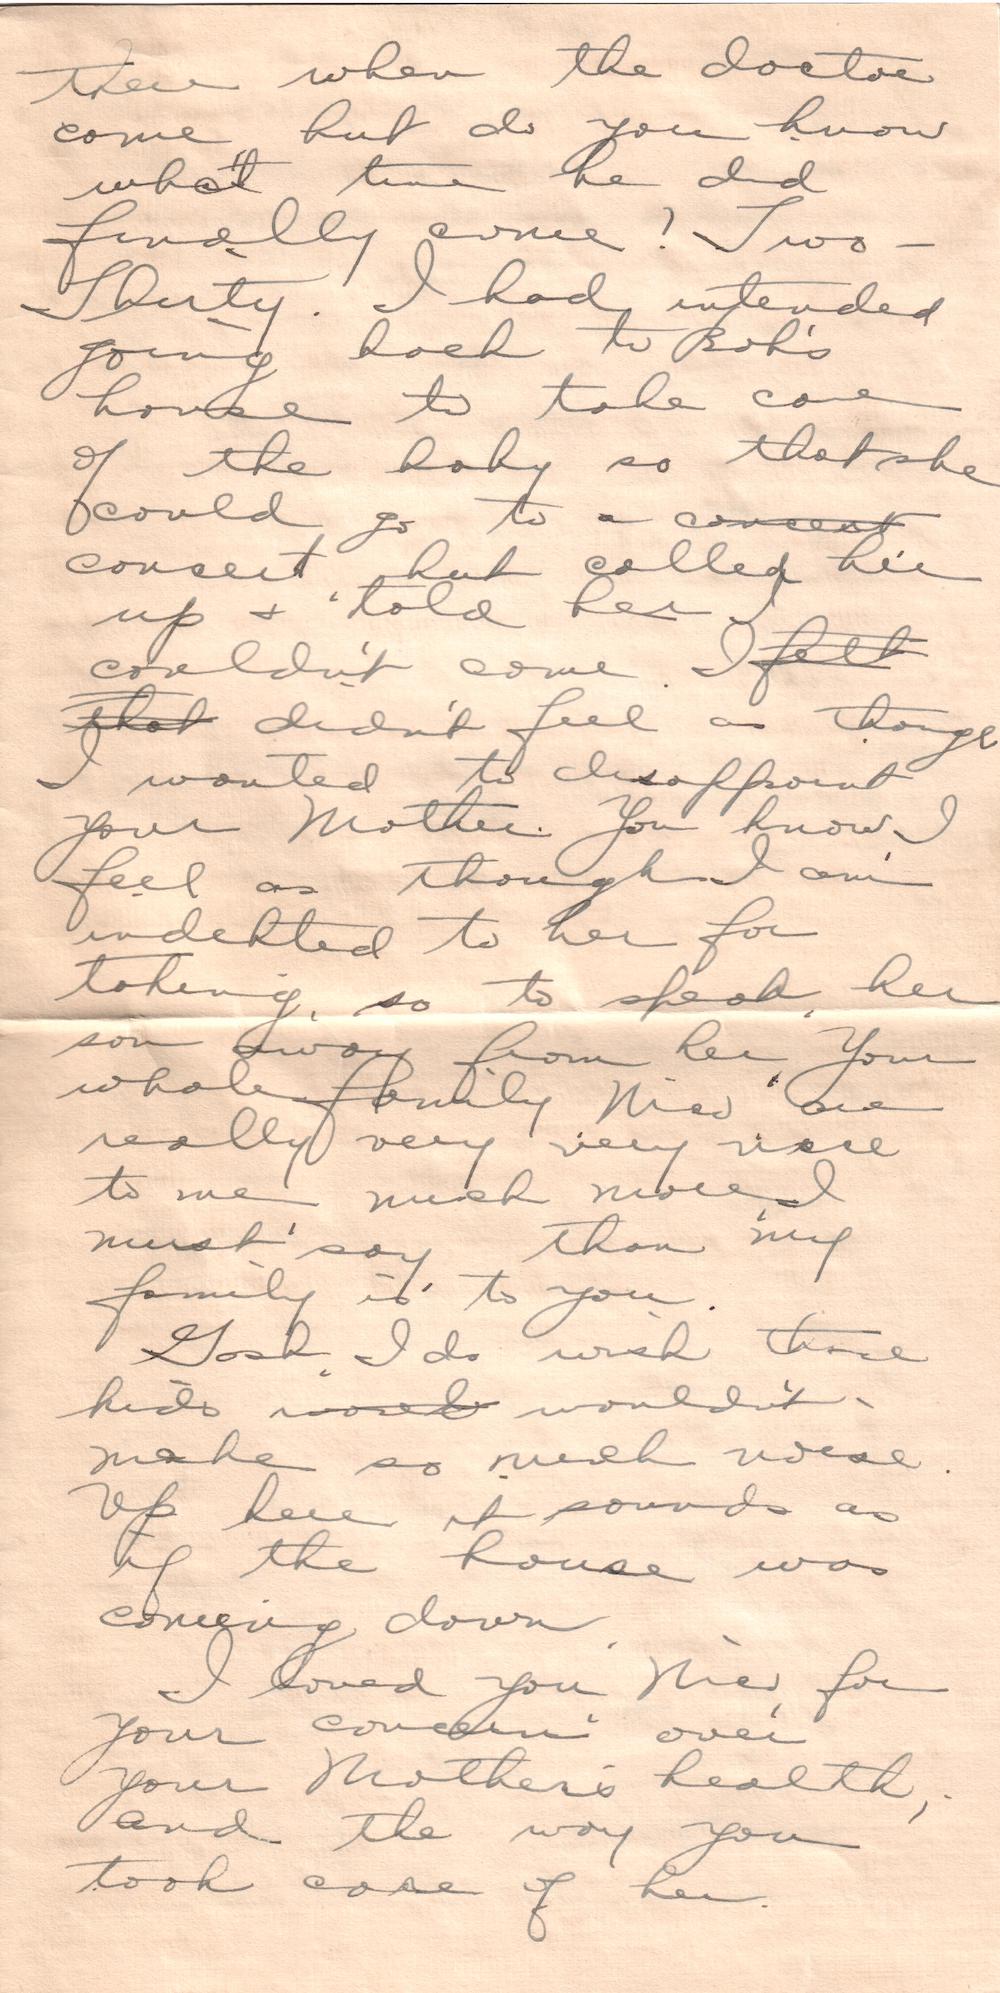 there when the doctor
come but do you know
what time he did
finally come? Two-
Thirty. I had intended
going back to Bob's
house to take care
of the baby so that she
could go to a concert
concert but called her
up & told her I
couldn't come. I felt
that didn't feel as though
I wanted to disappoint
your Mother. You know I
feel as though I am
indebted to her for
taking, so to speak, her
son away from her. Your
whole family are
really very very nice
to me much more I
must say than my
family is to you.
Gosh, I do wish those
kids would wouldn't
make so much noise.
Up here it sounds as
if the house was
coming down.
I loved you for
your concern over
your Mother's health,
and the way you
took care of her.